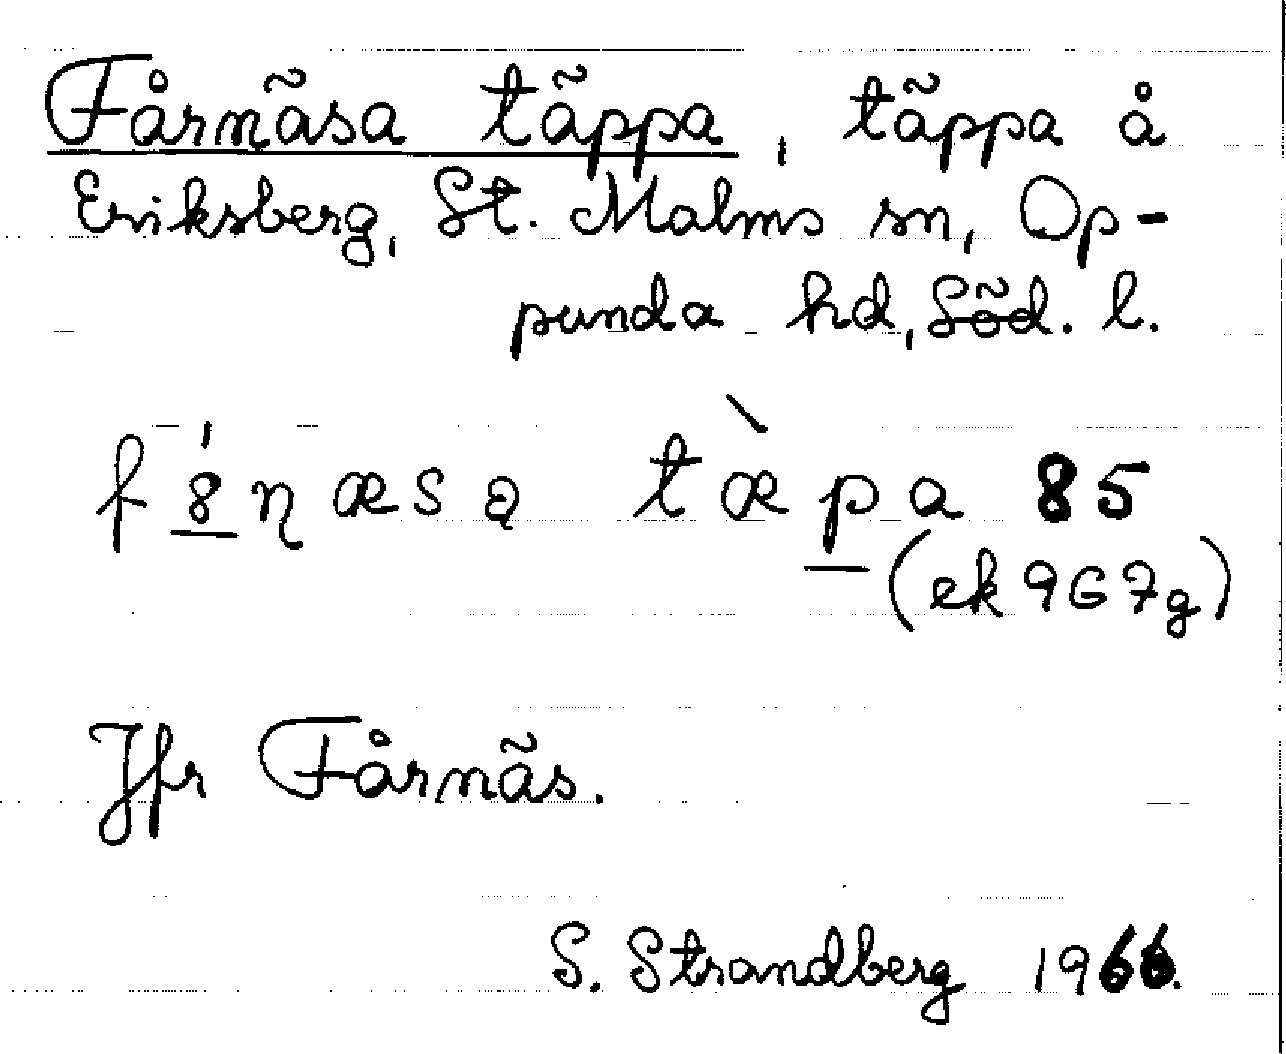 Fårnäsa täppa, täppa å
Eriksberg, St. Malms sn, Op-
punda hd, Söd. l.
tæpa 85
(ek 967g)
Jfr Fårnäs.
S. Strandberg 1966.